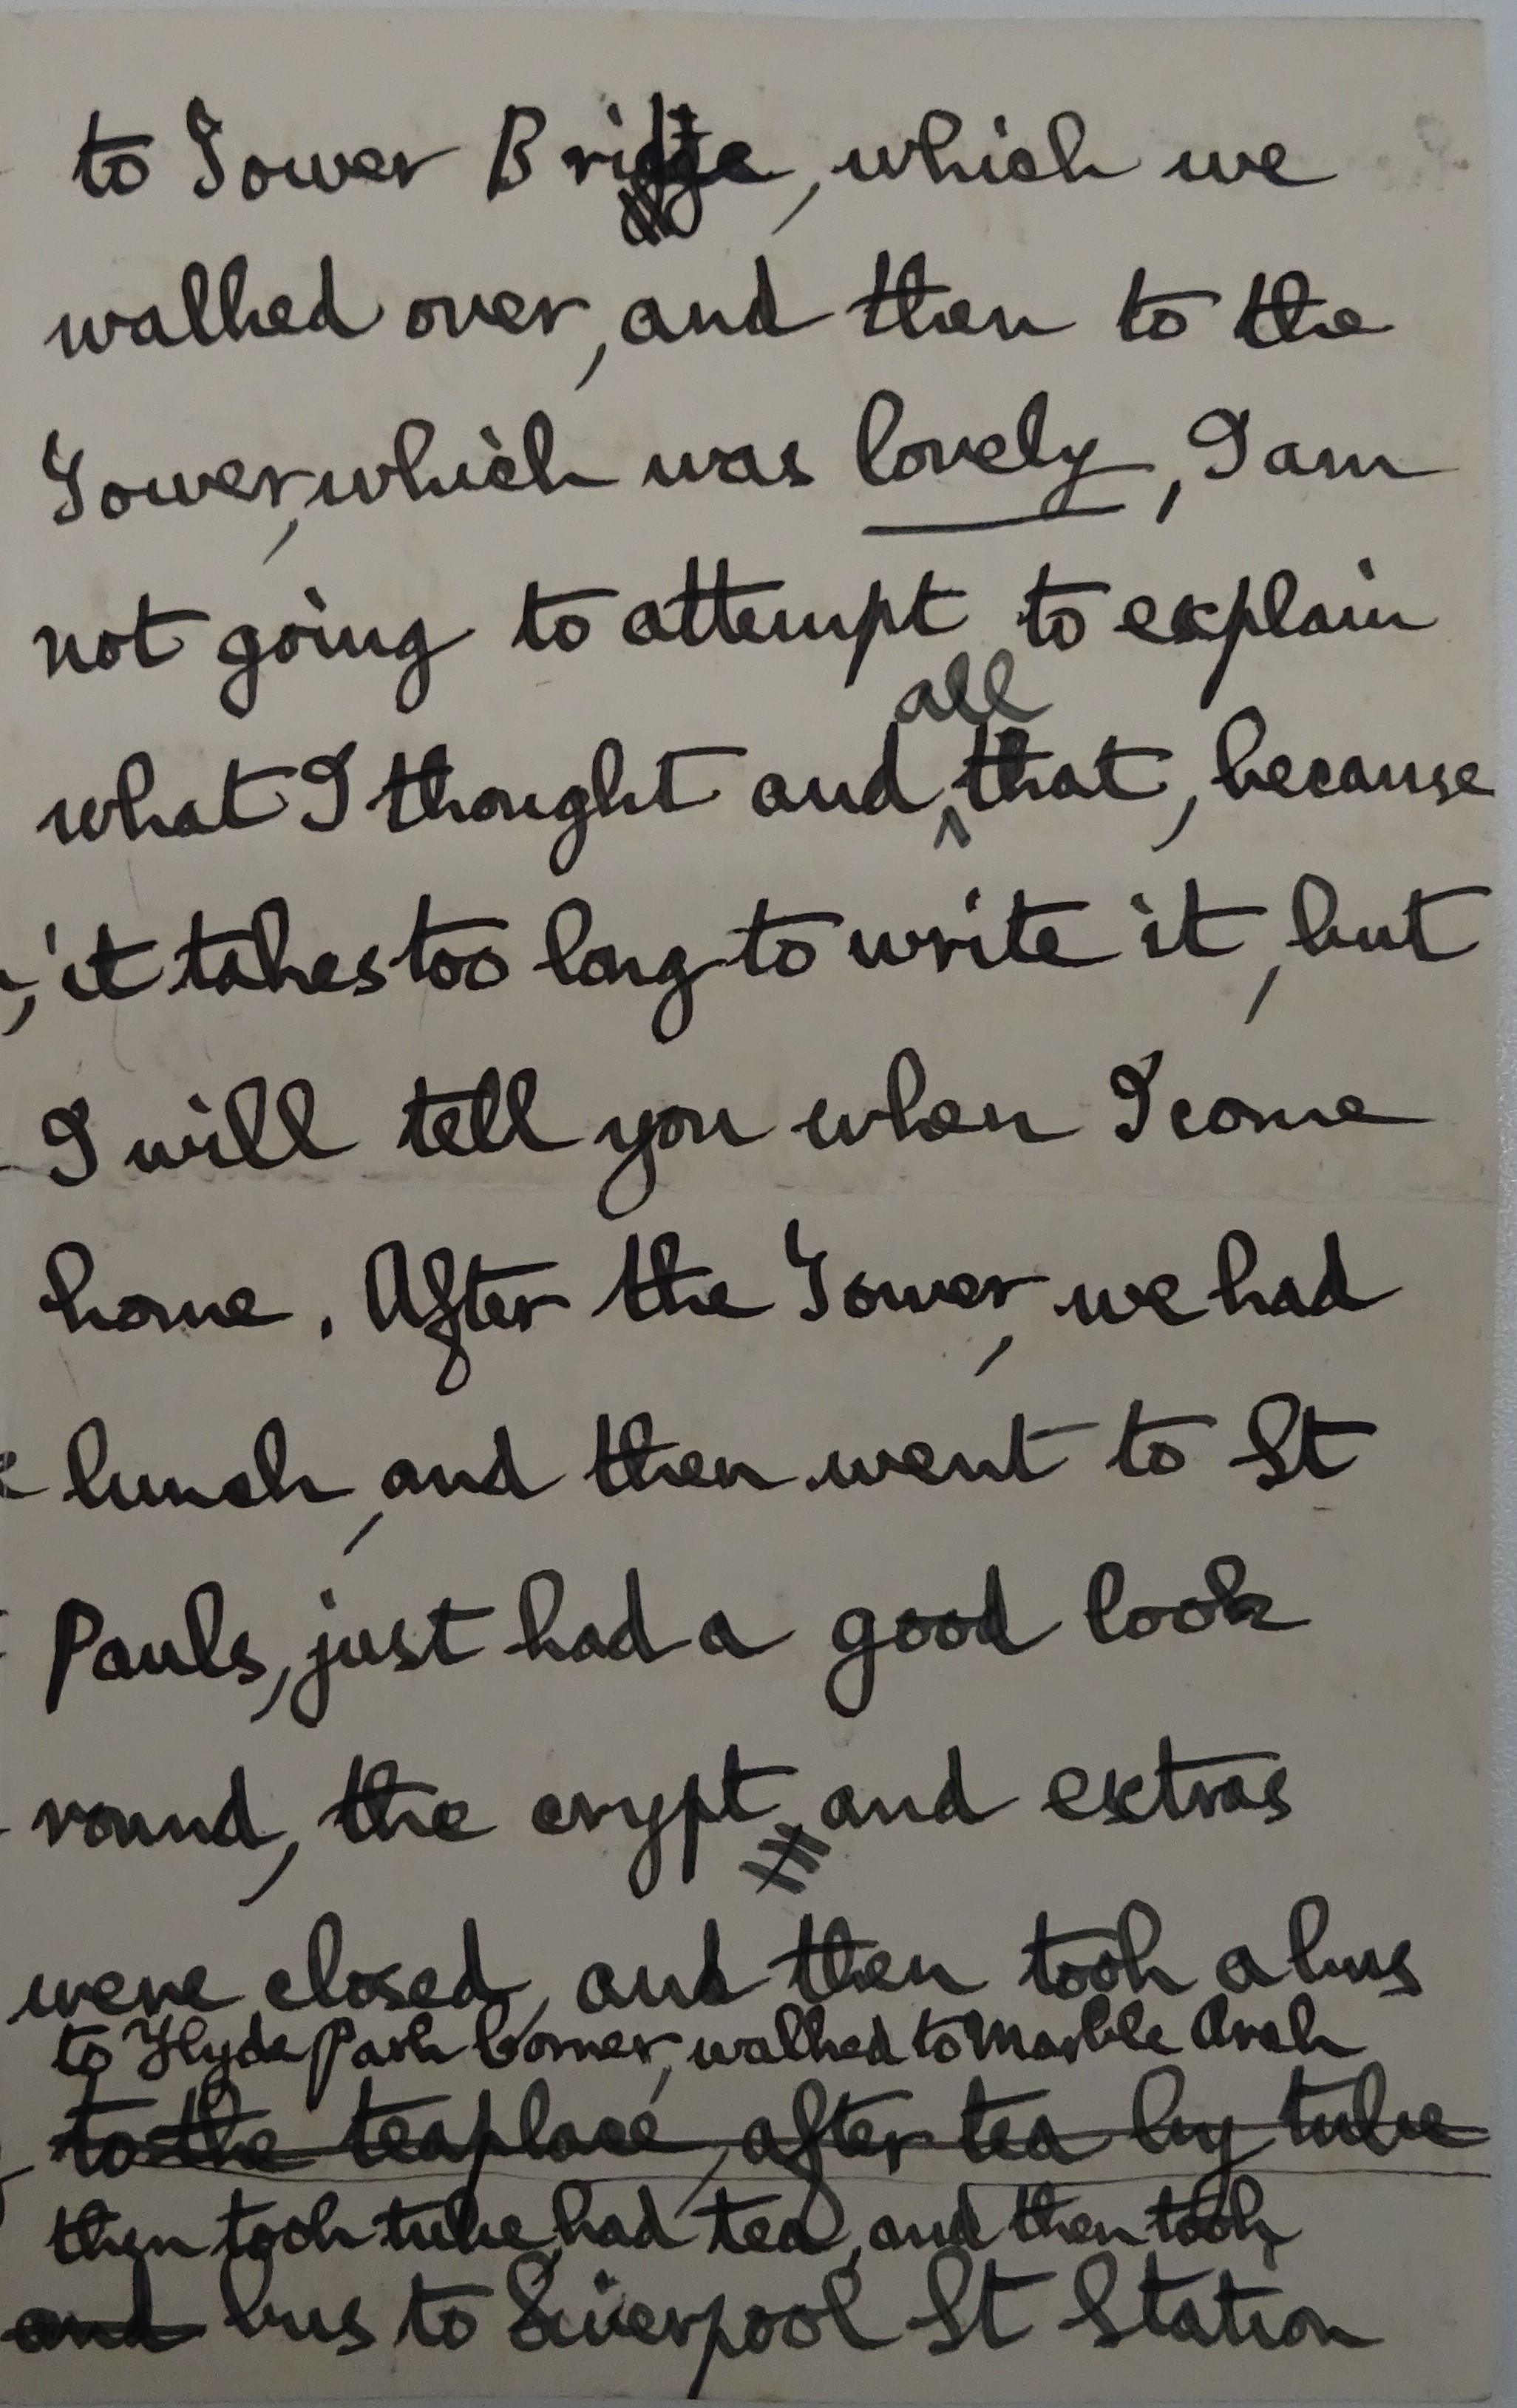 to Tower Bridge, which we
walked over, and then to the
Tower, which was lovely, I am
not going to attempt to explain
all
what I thought and that, because
it takes too long to write it, but
I will tell you when I come
home. After the Tower, we had
lunch, and then went to St
Pauls, just had a good look
round, the crypt and extras
were closed, and then took a bus
to Hyde Park Corner, walked to Marble Arch
to the teaplace, after tea by tube
then took tube, had tea, and then took
and bus to Liverpool St Station